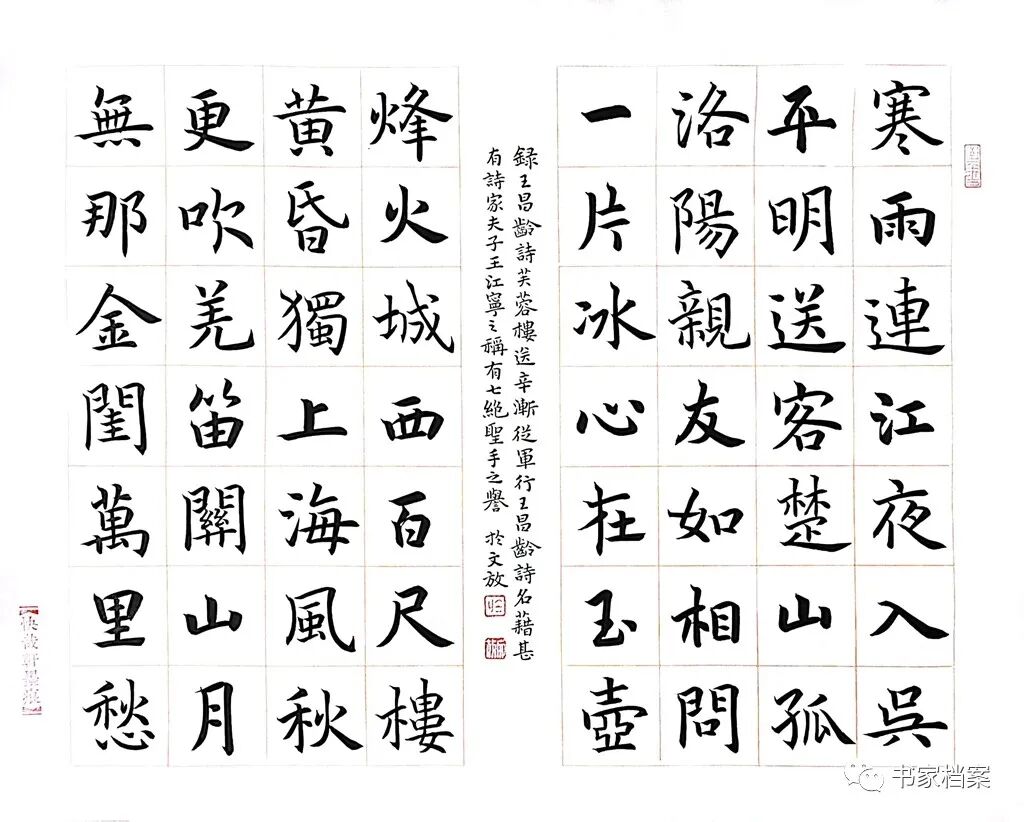 寒雨連江夜入吳
平明送客楚山孤
洛陽親友如相問
一片冰心在玉壺
録王昌齡詩芙蓉樓送辛漸從軍行王昌齡詩名藉甚
有詩家夫子王江寧之稱有七絕聖手之譽 於文放
烽火城西百尺樓
黃昏獨上海風秋
更吹羌笛關山月
無那金閨萬里愁
書家档案